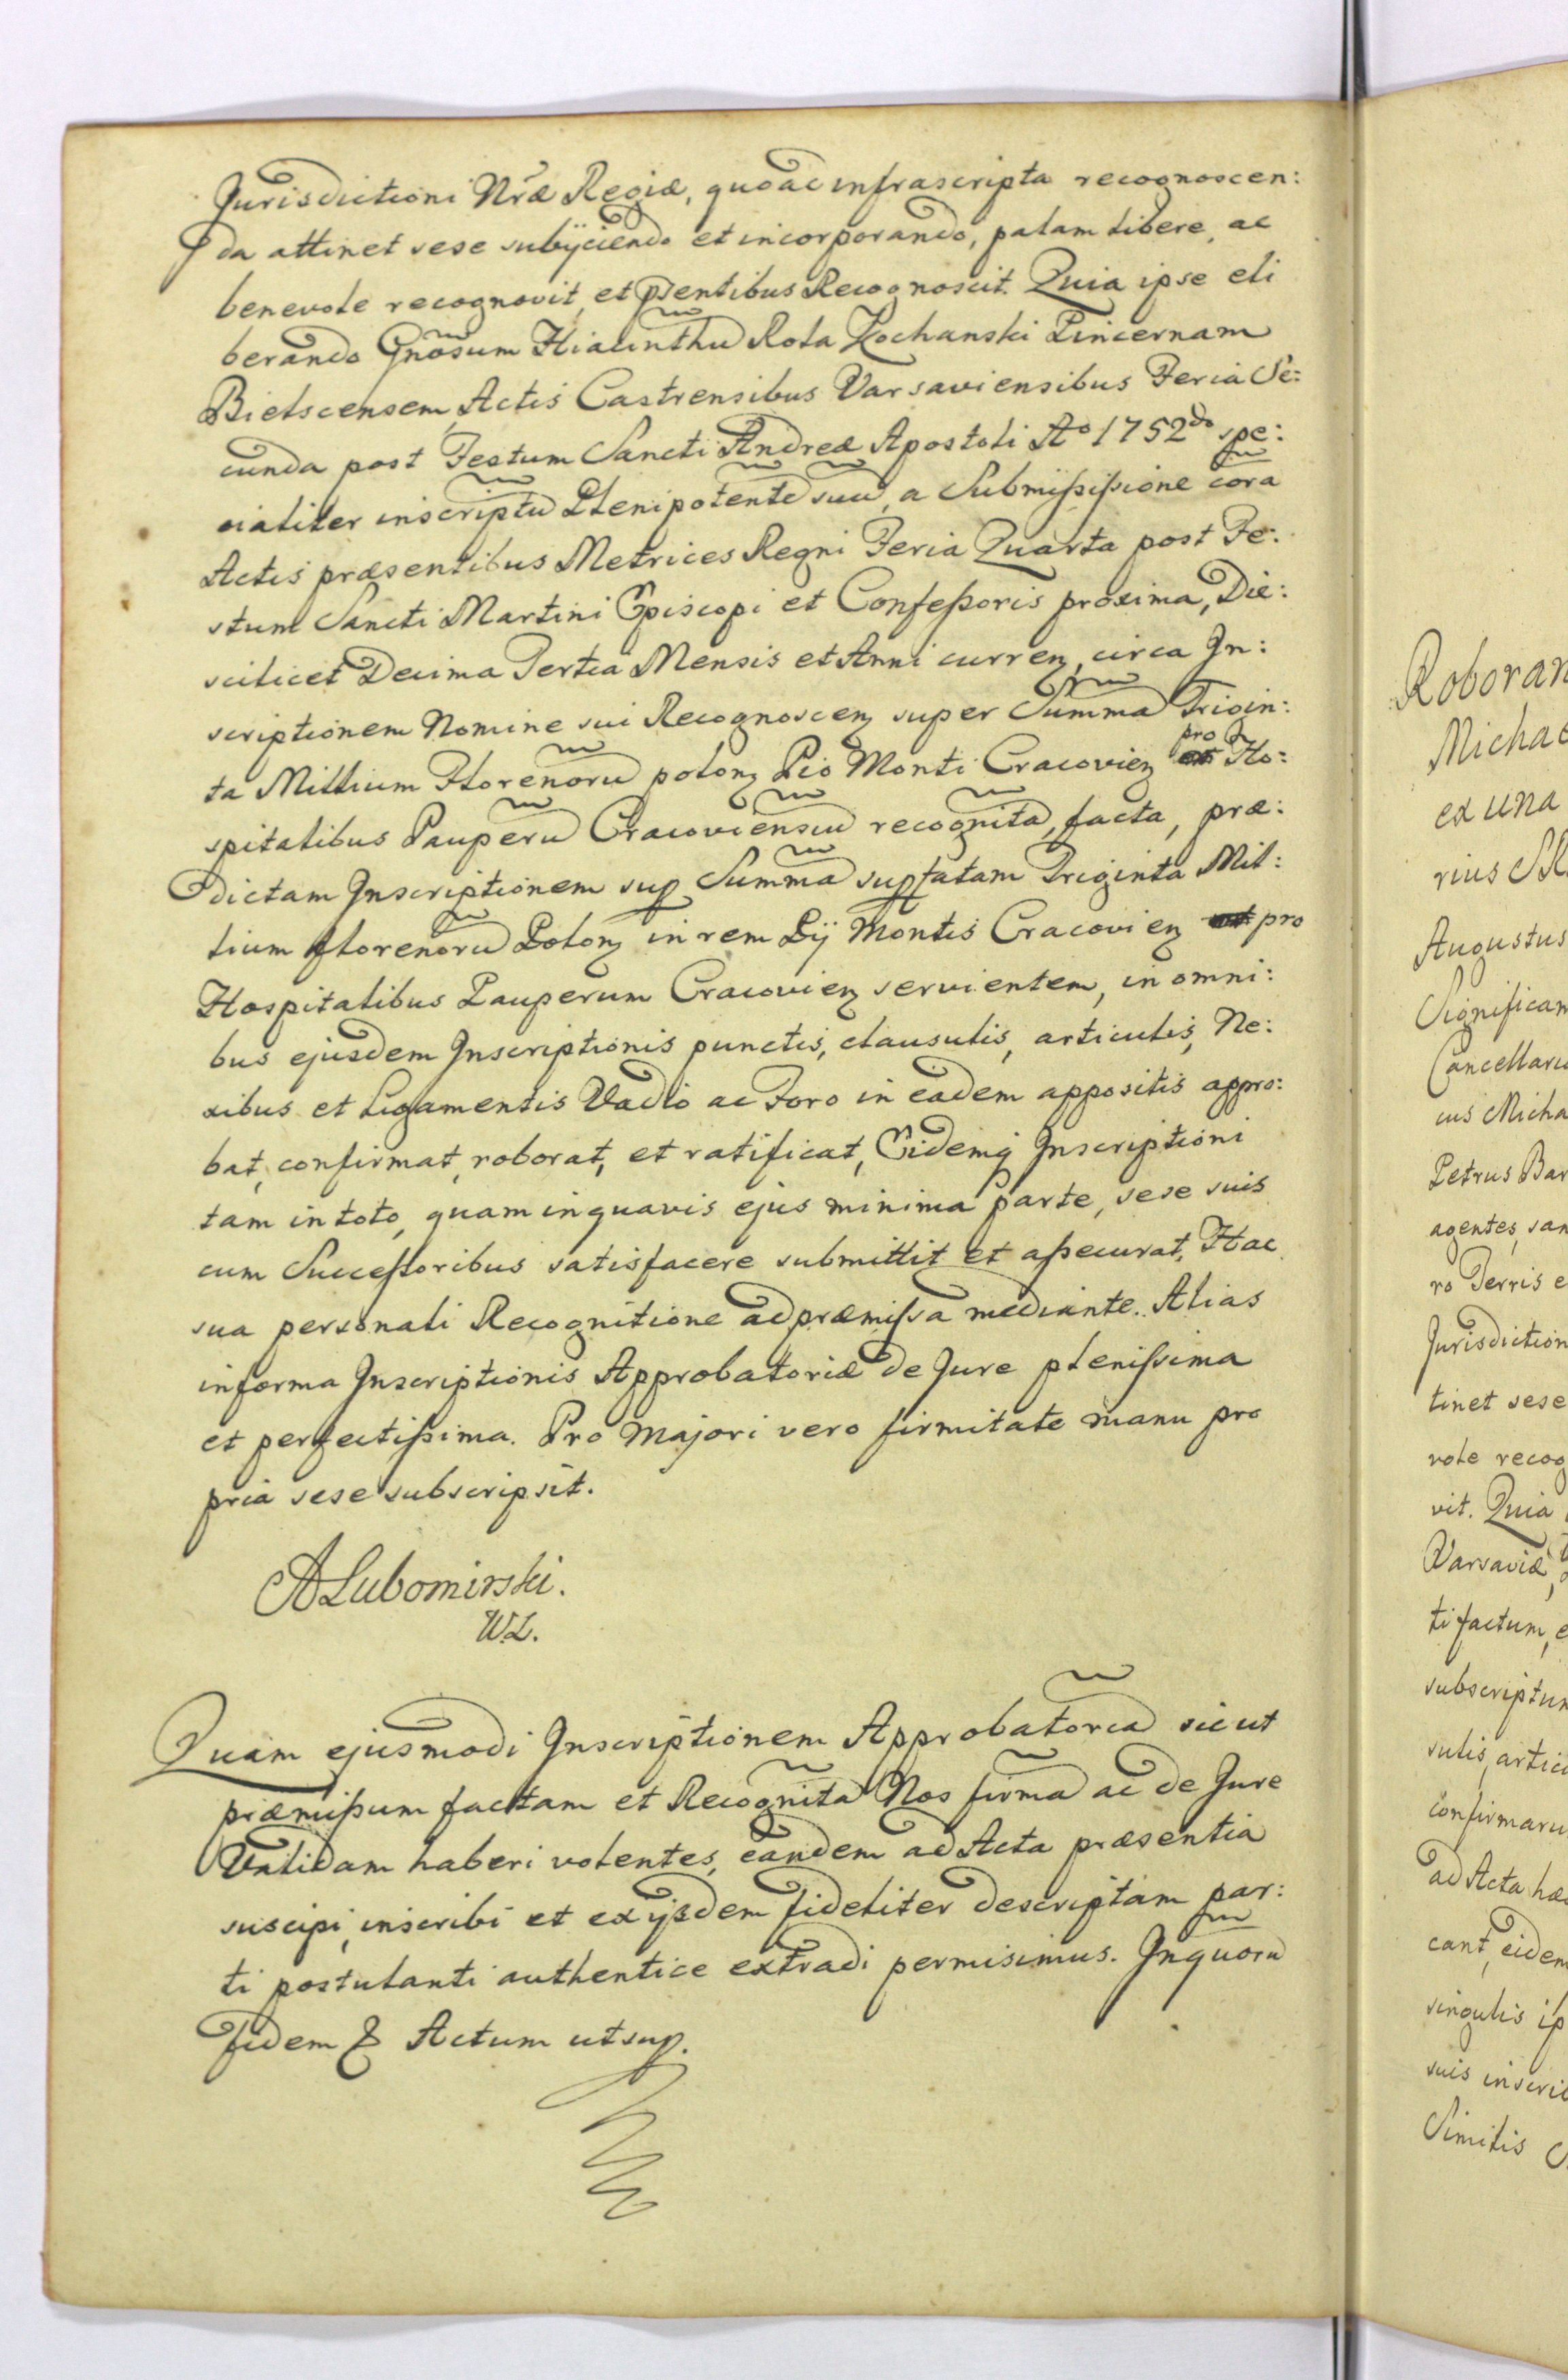 Jurisdictioni Nrã Regiæ, quoad infrascripta recognoscen:
da attinet sese subijciendo et incorporando, palam libere, ac
benevole recognovit, et pr̃sentibus Recognoscit. Quia ipse eli
berando Gnõsum Hiacinthũ Rola Kochanski Pincernam
Bielscensem, Actis Castrensibus Varsaviensibus Feria Se:
cunda post Festum Sancti Andreæ Apostoli Aº 1752do spe:
cialiter inscriptũ Plenipotentẽ suũ, a Submississione corã
Actis præsentibus Metrices Regni Feria Quarta post Fe:
stum Sancti Martini Episcopi et Confessoris proxima, Die:
scilicet Decima Tertia Mensis et Anni curren, circa In:
scriptionem Nomine sui Recognoscen super Summã Trigin:
ta Millium Florenorũ polon Pio Monti Cracovien pro Ho:
spitalibus Pauperũ Cracoviensiũ recognitã, facta, præ:
dictam Inscriptionem sup Summã supfatam Triginta Mil:
lium florenorũ Polon in rem Pij Montis Cracovien pro
Hospitalibus Pauperum Cracovien servientem, in omni:
bus ejusdem Inscriptionis punctis, clausulis, articulis, Ne:
xibus et Ligamentis Vadio ac Foro in eadem appositis appro:
bat, confirmat, roborat, et ratificat, Eidemq Inscriptioni
tam in toto, quam in quavis ejus minima parte, sese suis
cum Successoribus satisfacere submittit et assecurat, Hac
sua personali Recognitione ad præmissa mediante. Alias
in forma Inscriptionis Approbatoriæ de Jure plenissima
et perfectissima. Pro Majori vero firmitate manu pro
pria sese subscripsit.
A Lubomirski.
W.L.
Quam ejusmodi Inscriptionem Approbatoriã sicut
præmissum factam et Recognitã Nos firmã ac de Jure
Validam haberi volentes, eandem ad Acta præsentia
suscipi, inscribi et ex ijsdem fideliter descriptam par:
ti postulanti authentice extradi permisimus. In quorũ
fidem & Actum ut sup.
Roboran
Michae
ex una
rius
Augustus
Significan
Cancellari
cus Micha
Petrus Bar
agentes, san
ro Terris e
Jurisdiction
tinet sese
vole recog
vit. Quia
Varsaviæ,
ti factum, e
subscriptum
sulis, artic
confirmaru
ad Acta hæ
cant, eidem
singulis ip
suis inscri
Similis